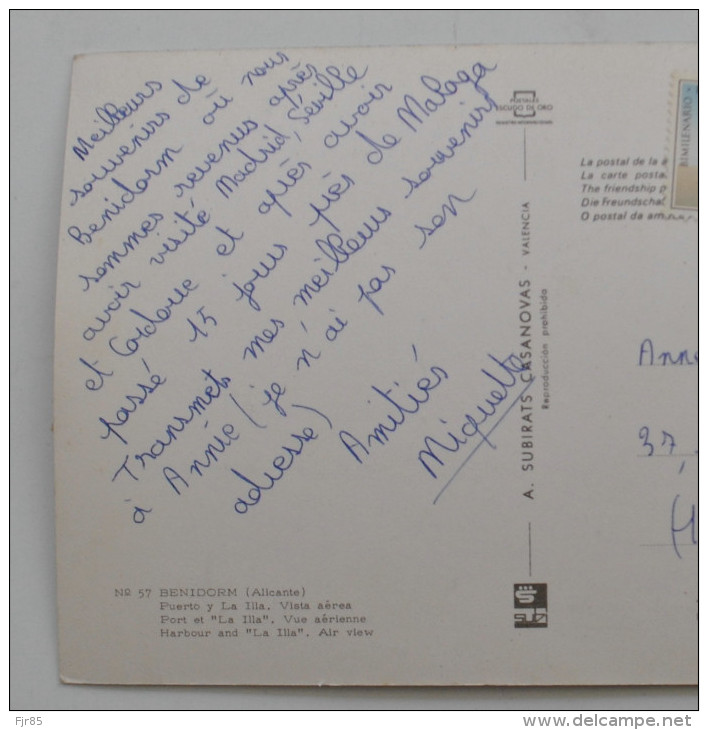 Meilleurs
souvenirs de
Benidorm où nous
sommes revenus après
avoir visité Madrid, Séville
et Cordoue et après avoir
passé 15 jours près de Malaga
Transmets mes meilleurs souvenirs
à Annie (je n'ai pas son
adresse)
Amitiés
Miquette
Nº 57 BENIDORM (Alicante)
Puerto y La Illa, Vista aérea
Port et "La Illa", Vue aérienne
Harbour and "La Illa", Air view
A. SUBIRATS CASANOVAS - VALENCIA
Reproducción prohibida
POSTALES
ESCUDO DE ORO
BIMILENARIO
La postal de la a
La carte posta
The friendship p
Die Freundscha
O postal da am
Anne
37,
(H
Fjr85
delcampe.net